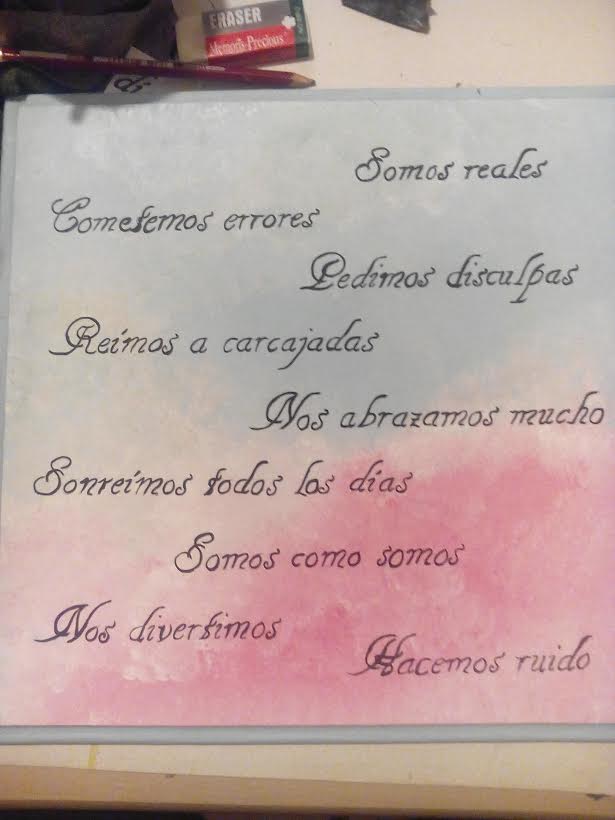 ERASER
Memoris-Precious
Somos reales
Cometemos errores
Pedimos disculpas
Reímos a carcajadas
Nos abrazamos mucho
Sonreímos todos los días
Somos como somos
Nos divertimos
Hacemos ruido